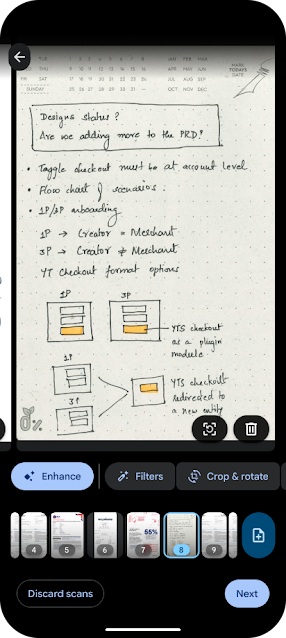 TUE
WED
SAT
SUNDAY
JAN FEB MAR
APR MAY JUN
JUL AUG SEP
OCT NOV DEC
MARK
TODAYS
DATE
Designs status?
Are we adding more to the PRD?
• Toggle checkout must be at account level
• Flow chart of scenarios.
• 1P/3P onboarding
1P → Creator = Merchant
3P → Creator ≠ Merchant
YT Checkout format options
1P
3P
YTS checkout
as a plugin
module
1P
3P
YTS checkout
redirected to
a new entity
%
Enhance
Filters
Crop & rotate
4
5
6
7
55%
8
9
Discard scans
Next